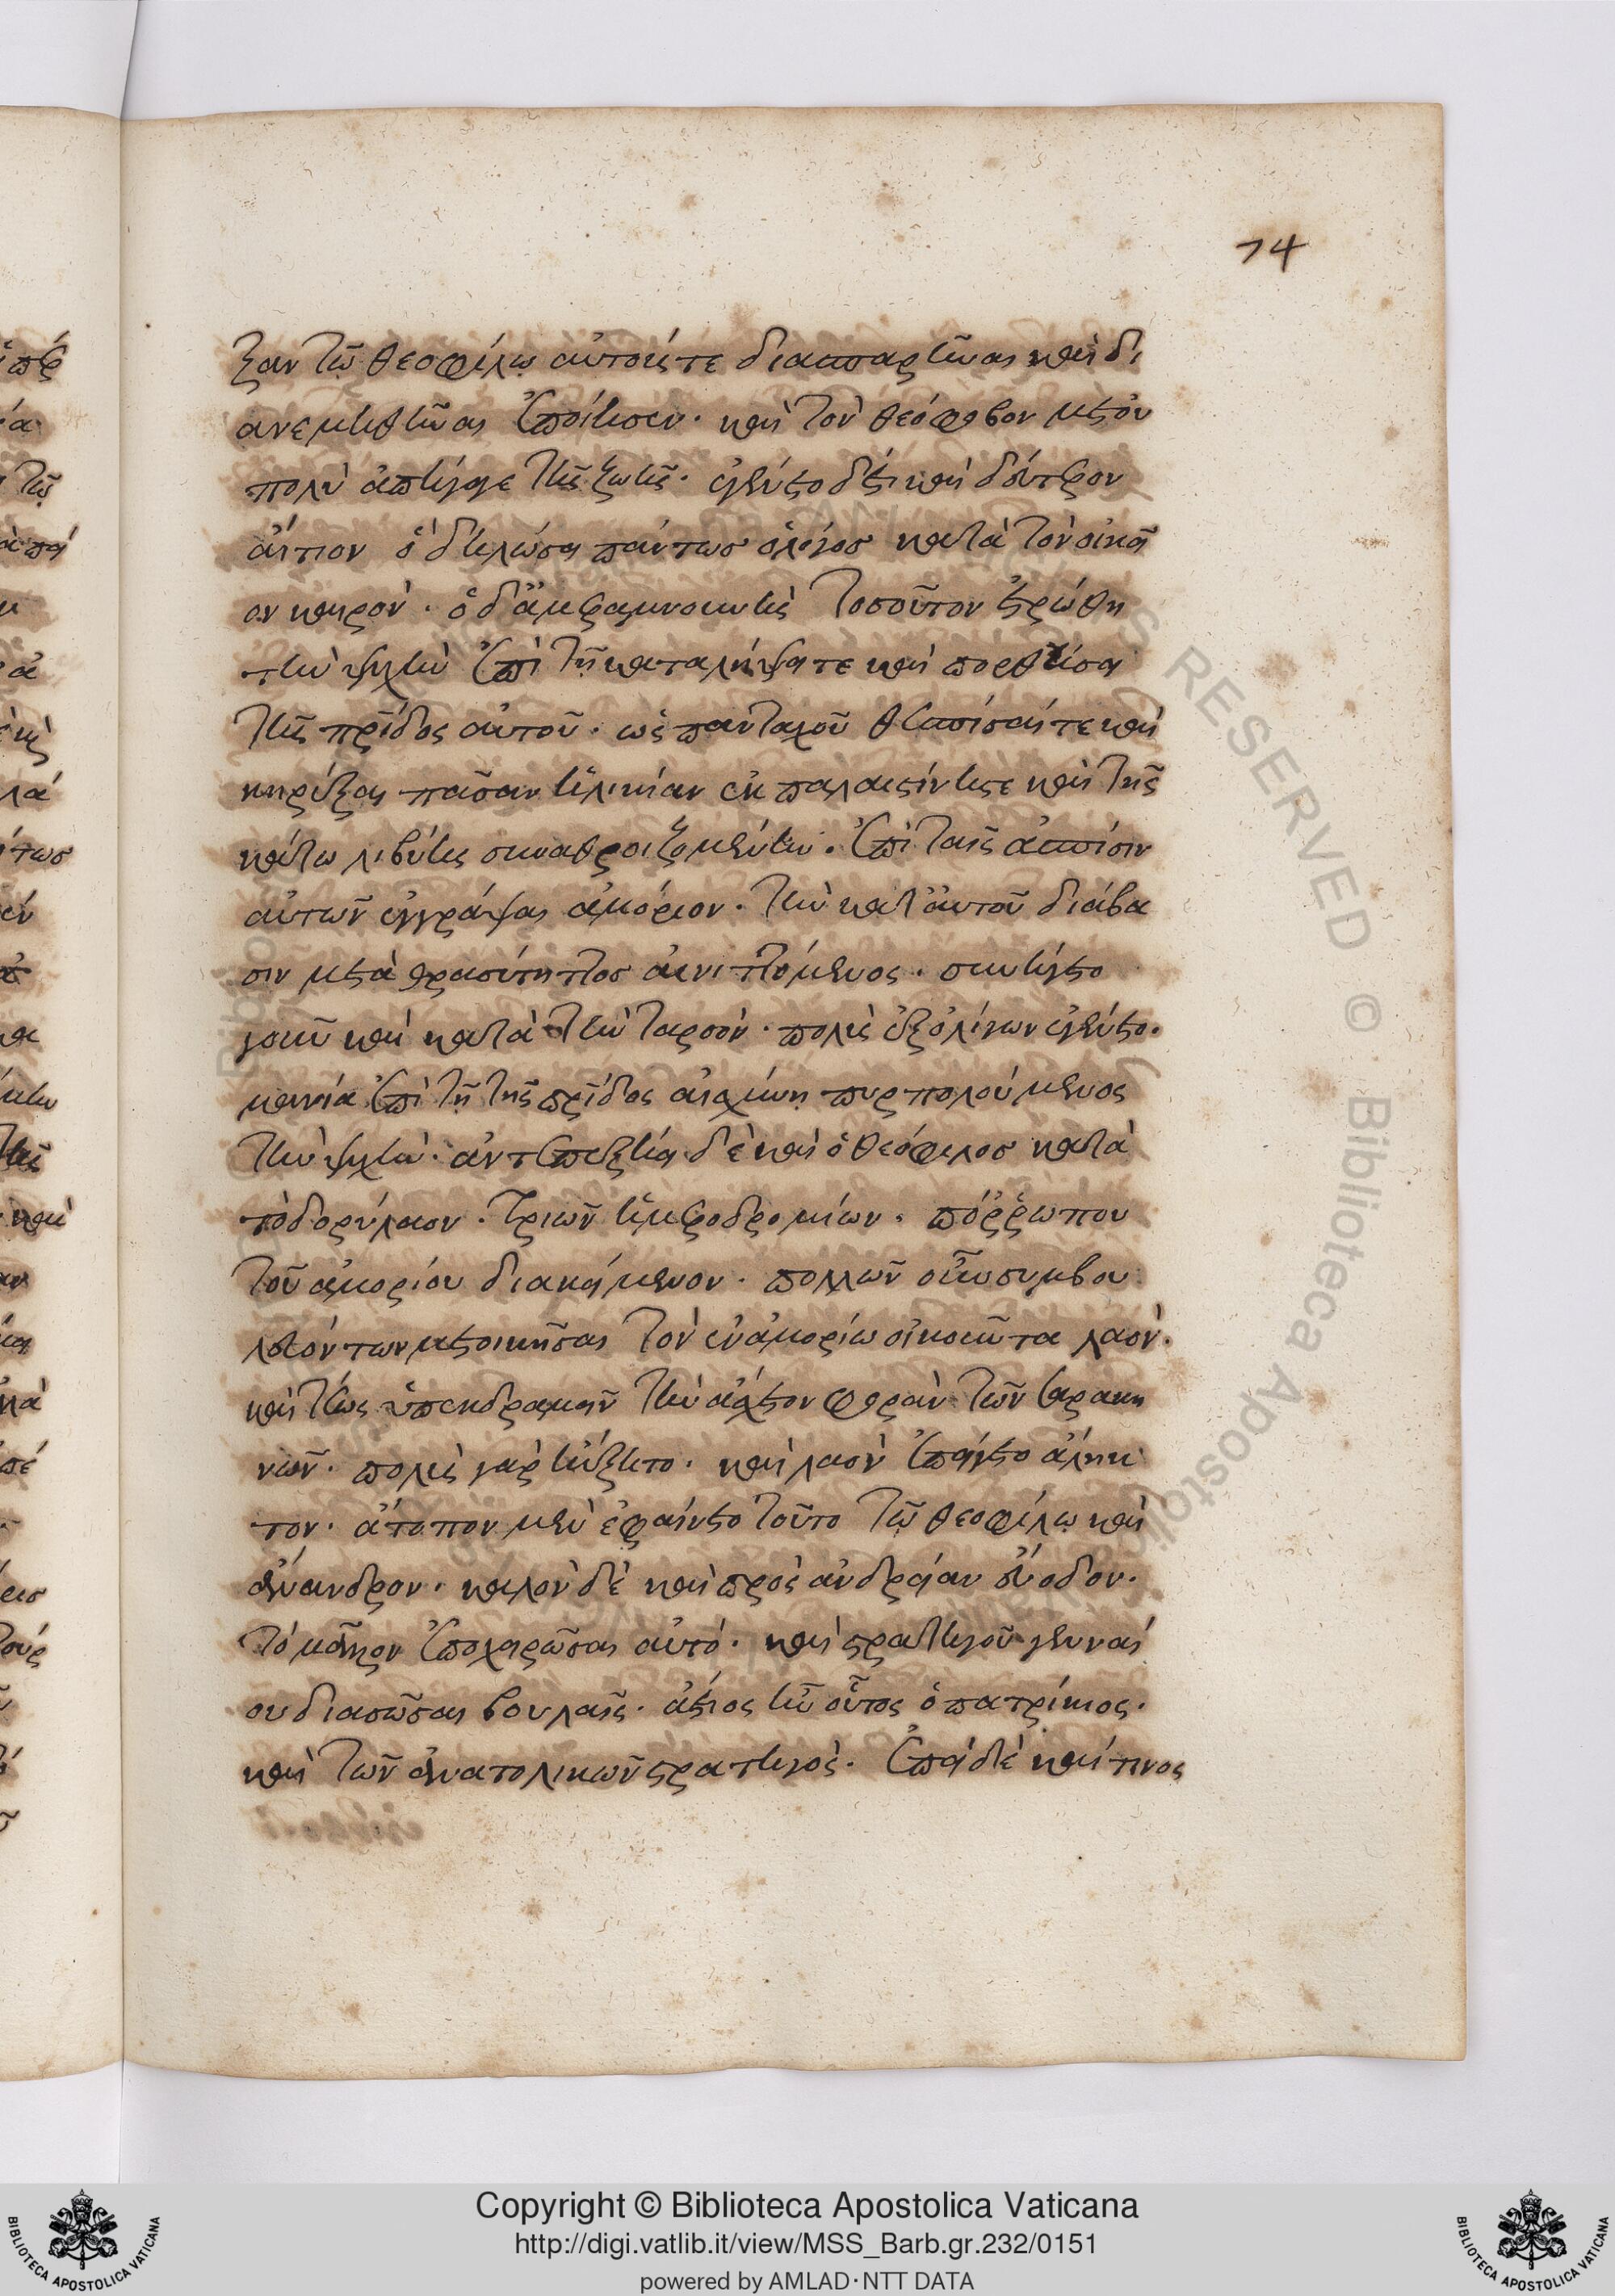 74
ξαν τῷ θεοφίλῳ αὐτούς τε διασπαρῆναι καὶ δι
ανεμηθῆναι ἐποίησεν· καὶ τὸν θεόφοβον μετ' οὐ
πολὺ ἀπήγαγε τῆς ζωῆς· ἐγένετο δέ τι καὶ δεύτερον
αἴτιον ὃ δηλώσει πάντως ὁ λόγος κατὰ τὸν οἰκεῖ
ον καιρόν· ὁ δ' ἀμεραμνουνῆς τοσοῦτον ἐτρώθη
τὴν ψυχὴν ἐπὶ τῇ καταλήψει τε καὶ πορθήσει
τῆς πρίδος αὐτοῦ· ὡς πανταχοῦ θεσπίσαί τε καὶ
κηρύξαι πᾶσαν ἡλικίαν ἐκ παλαιστίνης τε καὶ τῆς
κάτω λιβύης συναθροιζομένην· ἐπὶ ταῖς ἀσπίσιν
αὐτῶν ἐγγράψαι ἀμόριον· τὴν κατ' αὐτοῦ διάβα
σιν μετὰ θρασύτητος αἰνιττόμενος· συνήγετο
γοῦν καὶ κατὰ τὴν ταρσόν· πολὺς ἐξ ὀλίγων ἐγένετο·
μανίᾳ ἐπὶ τῇ τῆς πρίδος αἰσχύνῃ πυρπολούμενος
τὴν ψυχήν· ἀντεπεξήει δὲ καὶ ὁ θεόφιλος κατὰ
τὸ δορύλαιον· τριῶν ἡμεροδρομίων· πόῤῥω που
τοῦ ἀμορίου διακείμενον· πολλῶν οὖν συμβου
λευόντων μετοικῆσαι τὸν ἐν ἀμορίω οἰκοῦντα λαόν·
καὶ τέως ὑπεκδραμεῖν τὴν ἄσχετον φορὰν τῶν σαρακη
νῶν· πολὺς γὰρ ηὔξητο· καὶ λαὸν ἐπήγετο ἄληκ
τον· ἄτοπον μὲν ἐφαίνετο τοῦτο τῷ θεοφίλῳ καὶ
ἄνανδρον· καλὸν δὲ καὶ πρὸς ἀνδρείαν εὔοδον·
τὸ μᾶλλον ἐποχυρῶσαι αὐτό· καὶ στρατηγοῦ γενναί
ου διασῶσαι βουλαῖς· ἀέτιος ἦν οὗτος ὁ πατρίκιος·
καὶ τῶν ἀνατολικῶν στρατηγός· ἐπεὶ δὲ καί τινος
Copyright © Biblioteca Apostolica Vaticana
http://digi.vatlib.it/view/MSS_Barb.gr.232/0151
powered by AMLAD·NTT DATA
BIBLIOTECA APOSTOLICA VATICANA
BIBLIOTECA APOSTOLICA VATICANA